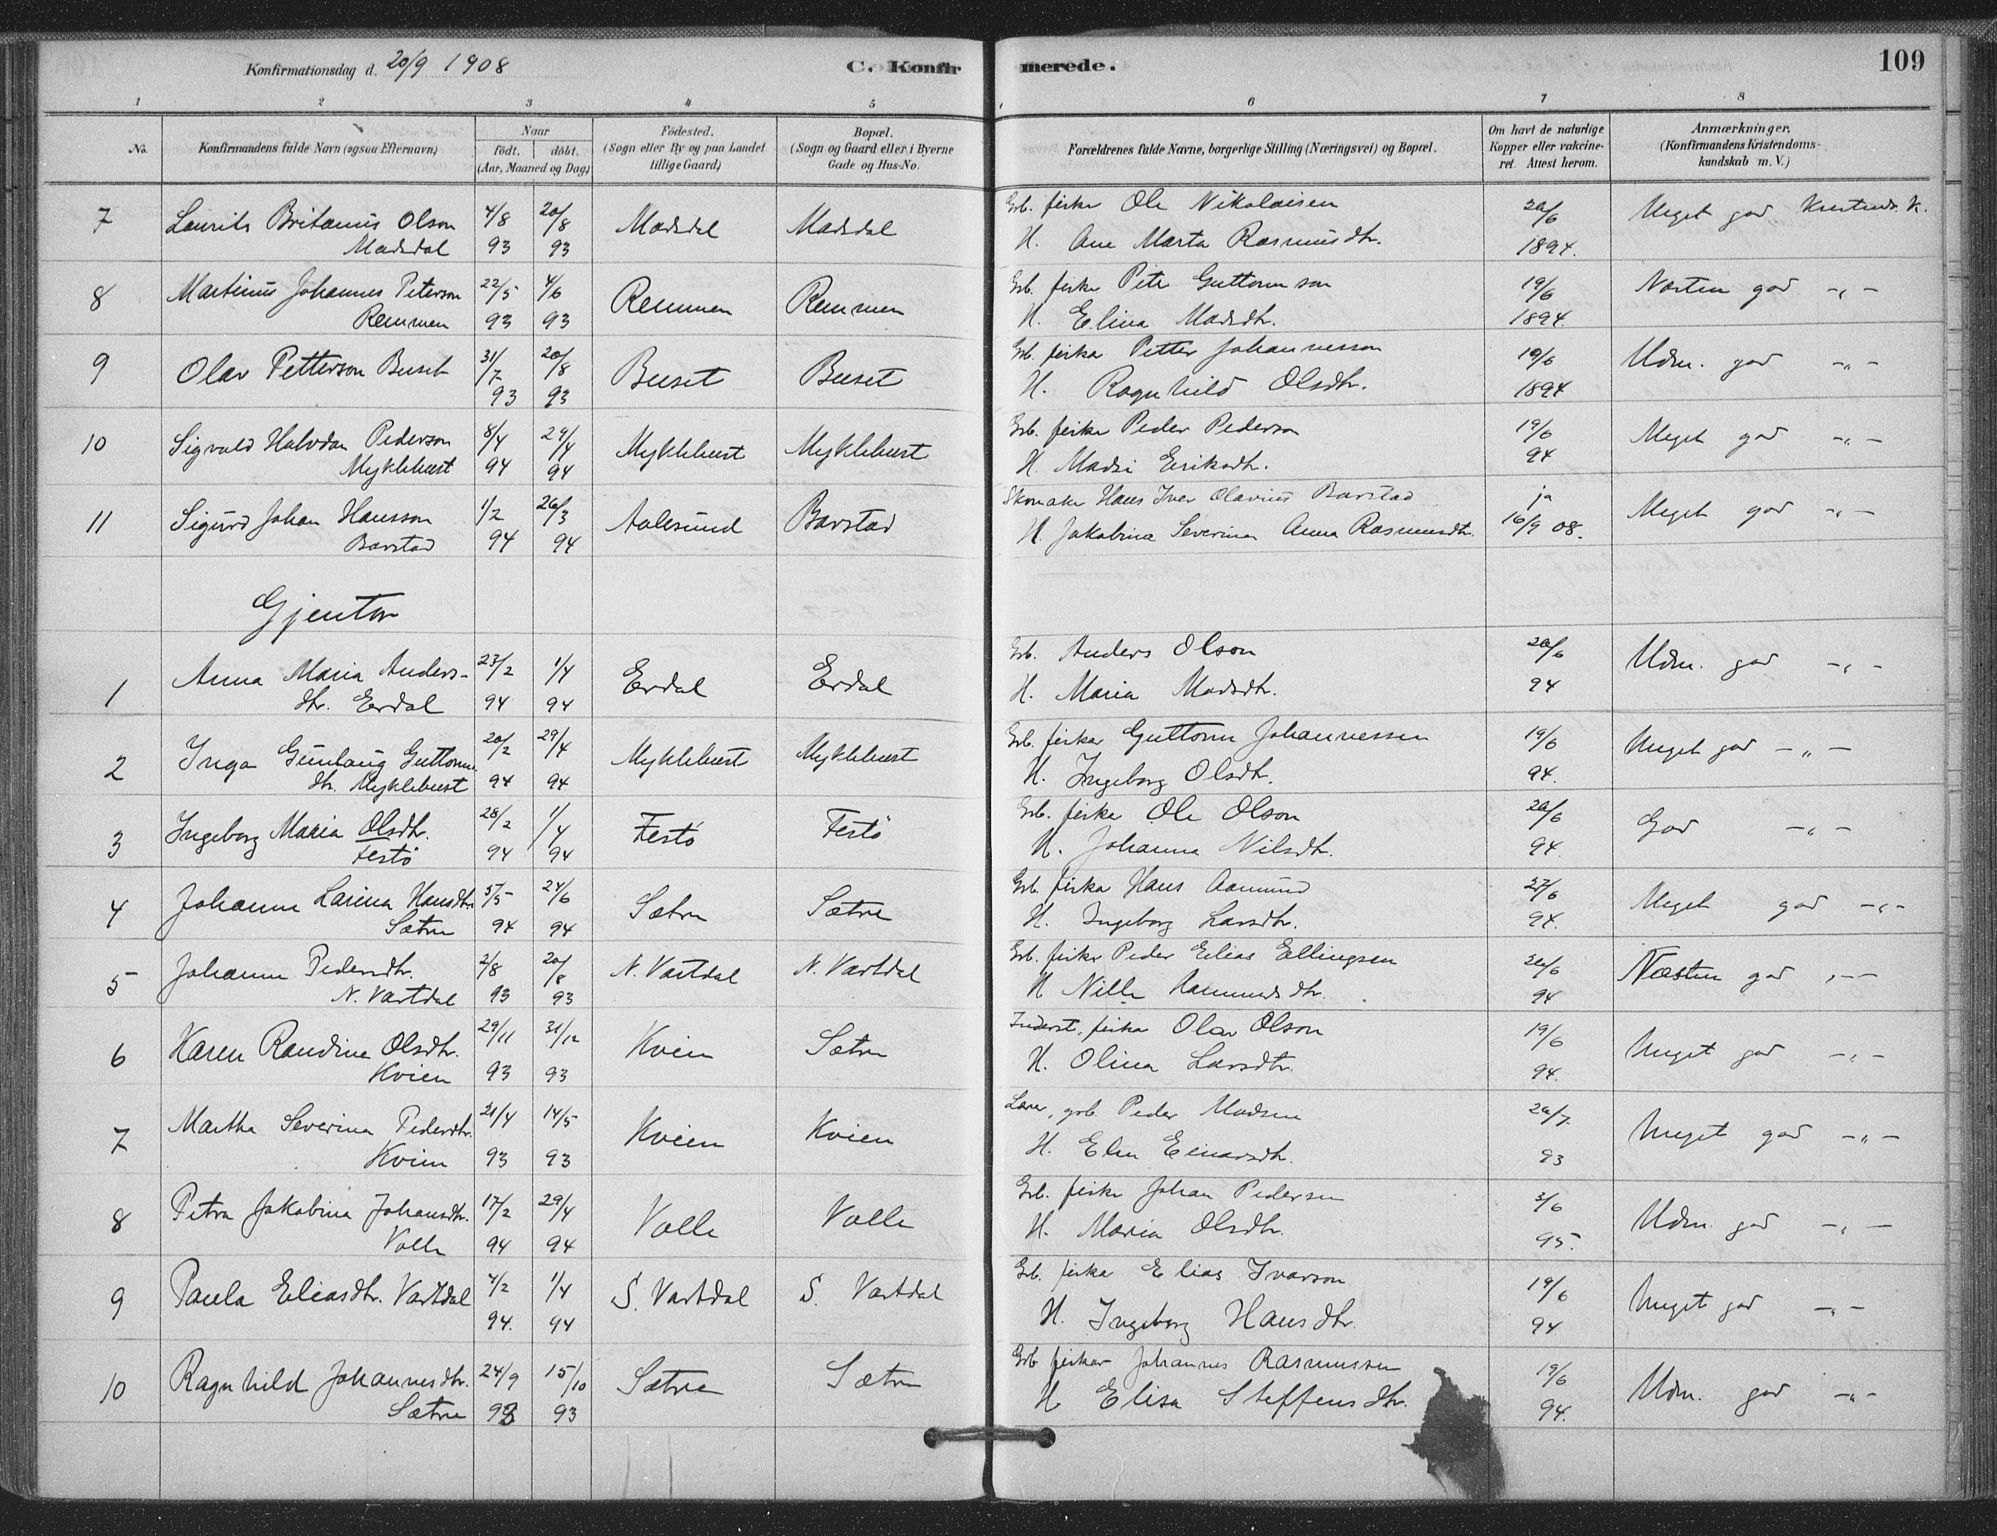 Konfirmationsdag d. 20/9 1908
C. Konfirmerede.
109
1 2 3 4 5 6 7 8
No.
Konfirmandens fulde Navn (ogsaa Efternavn)
Naar
födt. döbt.
(Aar, Maaned og Dag)
Födested.
(Sogn eller By og paa Landet
tillige Gaard)
Bopæl.
(Sogn og Gaard eller i Byerne
Gade og Hus-No.
Forældrenes fulde Navne, borgerlige Stilling (Næringsvei) og Bopæl.
Om havt de naturlige
Kopper eller vakcine-
ret. Attest herom.
Anmærkninger.
(Konfirmandens Kristendoms-
kundskab m. V.)
7 Laurits Britanus Olson 4/8 20/8 Madsdal Madsdal Grb. fisker Ole Nikolaisen 20/6 Meget god Kristends. k.
Madsdal 93 93 H. Ane Marta Rasmusdtr. 1894.
8 Martinus Johannes Peterson 22/5 4/6 Remmen Remmen Grb. fisker Peter Guttormson 19/6 Næsten god -"-
Remmen 93 93 H. Elina Madsdtr. 1894.
9 Olav Petterson Buset 31/7 20/8 Buset Buset Grb. fiskar Petter Johannesson 19/6 Udm. god -"-
93 93 H. Ragnhild Olsdtr. 1894
10 Sigvald Halvdan Pederson 8/4 29/4 Myklebust Myklebust Grb. fisker Peder Pederson 19/6 Meget god -"-
Myklebust 94 94 H. Madsi Eriksdtr. 94
11 Sigurd Johan Hansson 1/2 26/3 Aalesund Barstad Skomaker Hans Iver Olavius Barstad ja Meget god -"-
Barstad 94 94 H. Jakobina Severina Anna Rasmusdtr. 16/9 08.
Gjentor
1 Anna Maria Anders- 23/2 1/4 Erdal Erdal Grb. Anders Olson 20/6 Udm. god -"-
dtr. Erdal 94 94 H. Maria Madsdtr. 94
2 Inga Gunlaug Guttorms 20/2 29/4 Myklebust Myklebust Grb. fiskar Guttorm Johannessen 19/6 Meget god -"-
dtr. Myklebust 94 94 H. Ingeborg Olsdtr. 94.
3 Ingeborg Maria Olsdtr. 28/2 1/4 Festö Festö Grb. fisker Ole Olson 20/6 God -"-
Festö 94 94 H. Johanna Nilsdtr. 94
4 Johanne Larina Hansdtr. 5/5 24/6 Sætre Sætre Grb. fiskar Hans Aamund 27/6 Meget god -"-
Sætre 94 94 H. Ingeborg Larsdtr. 94.
5 Johanne Pedersdtr. 2/8 20/8 N. Vartdal N. Vartdal Grb. fisker Peder Elias Ellingsen 20/6 Næsten god -"-
N. Vartdal 93 93 H Nille Aamundsdtr. 94
6 Karen Randine Olsdtr. 29/11 31/12 Kvien Sætre Inderst, fiskar Olav Olson 19/6 Meget god -"-
Kvien 93 93 H. Olina Larsdtr. 94.
7 Martha Severina Pedersdtr. 21/4 14/5 Kvien Kvien Lærer, grb. Peder Madsen 20/7 Meget god -"-
Kvien 93 93 H. Elen Einarsdtr. 93
8 Petra Jakobina Johansdtr. 17/2 29/4 Volle Volle Grb. fisker Johan Pedersen 3/6 Udm. god -"-
Volle 94 94 H. Maria Olsdtr. 95.
9 Paula Eliasdtr. Vartdal 4/2 1/4 S. Vartdal S. Vartdal Grb. fiskar Elias Ivarson 19/6 Meget god -"-
94. 94 H. Ingeborg Hansdtr. 94
10 Ragnhild Johannesdtr. 24/9 15/10 Sætre Sætre Grb fiskar Johannes Rasmussen 19/6 Udm. god -"-
Sætre 93 93 H Elisa Steffensdtr. 94.